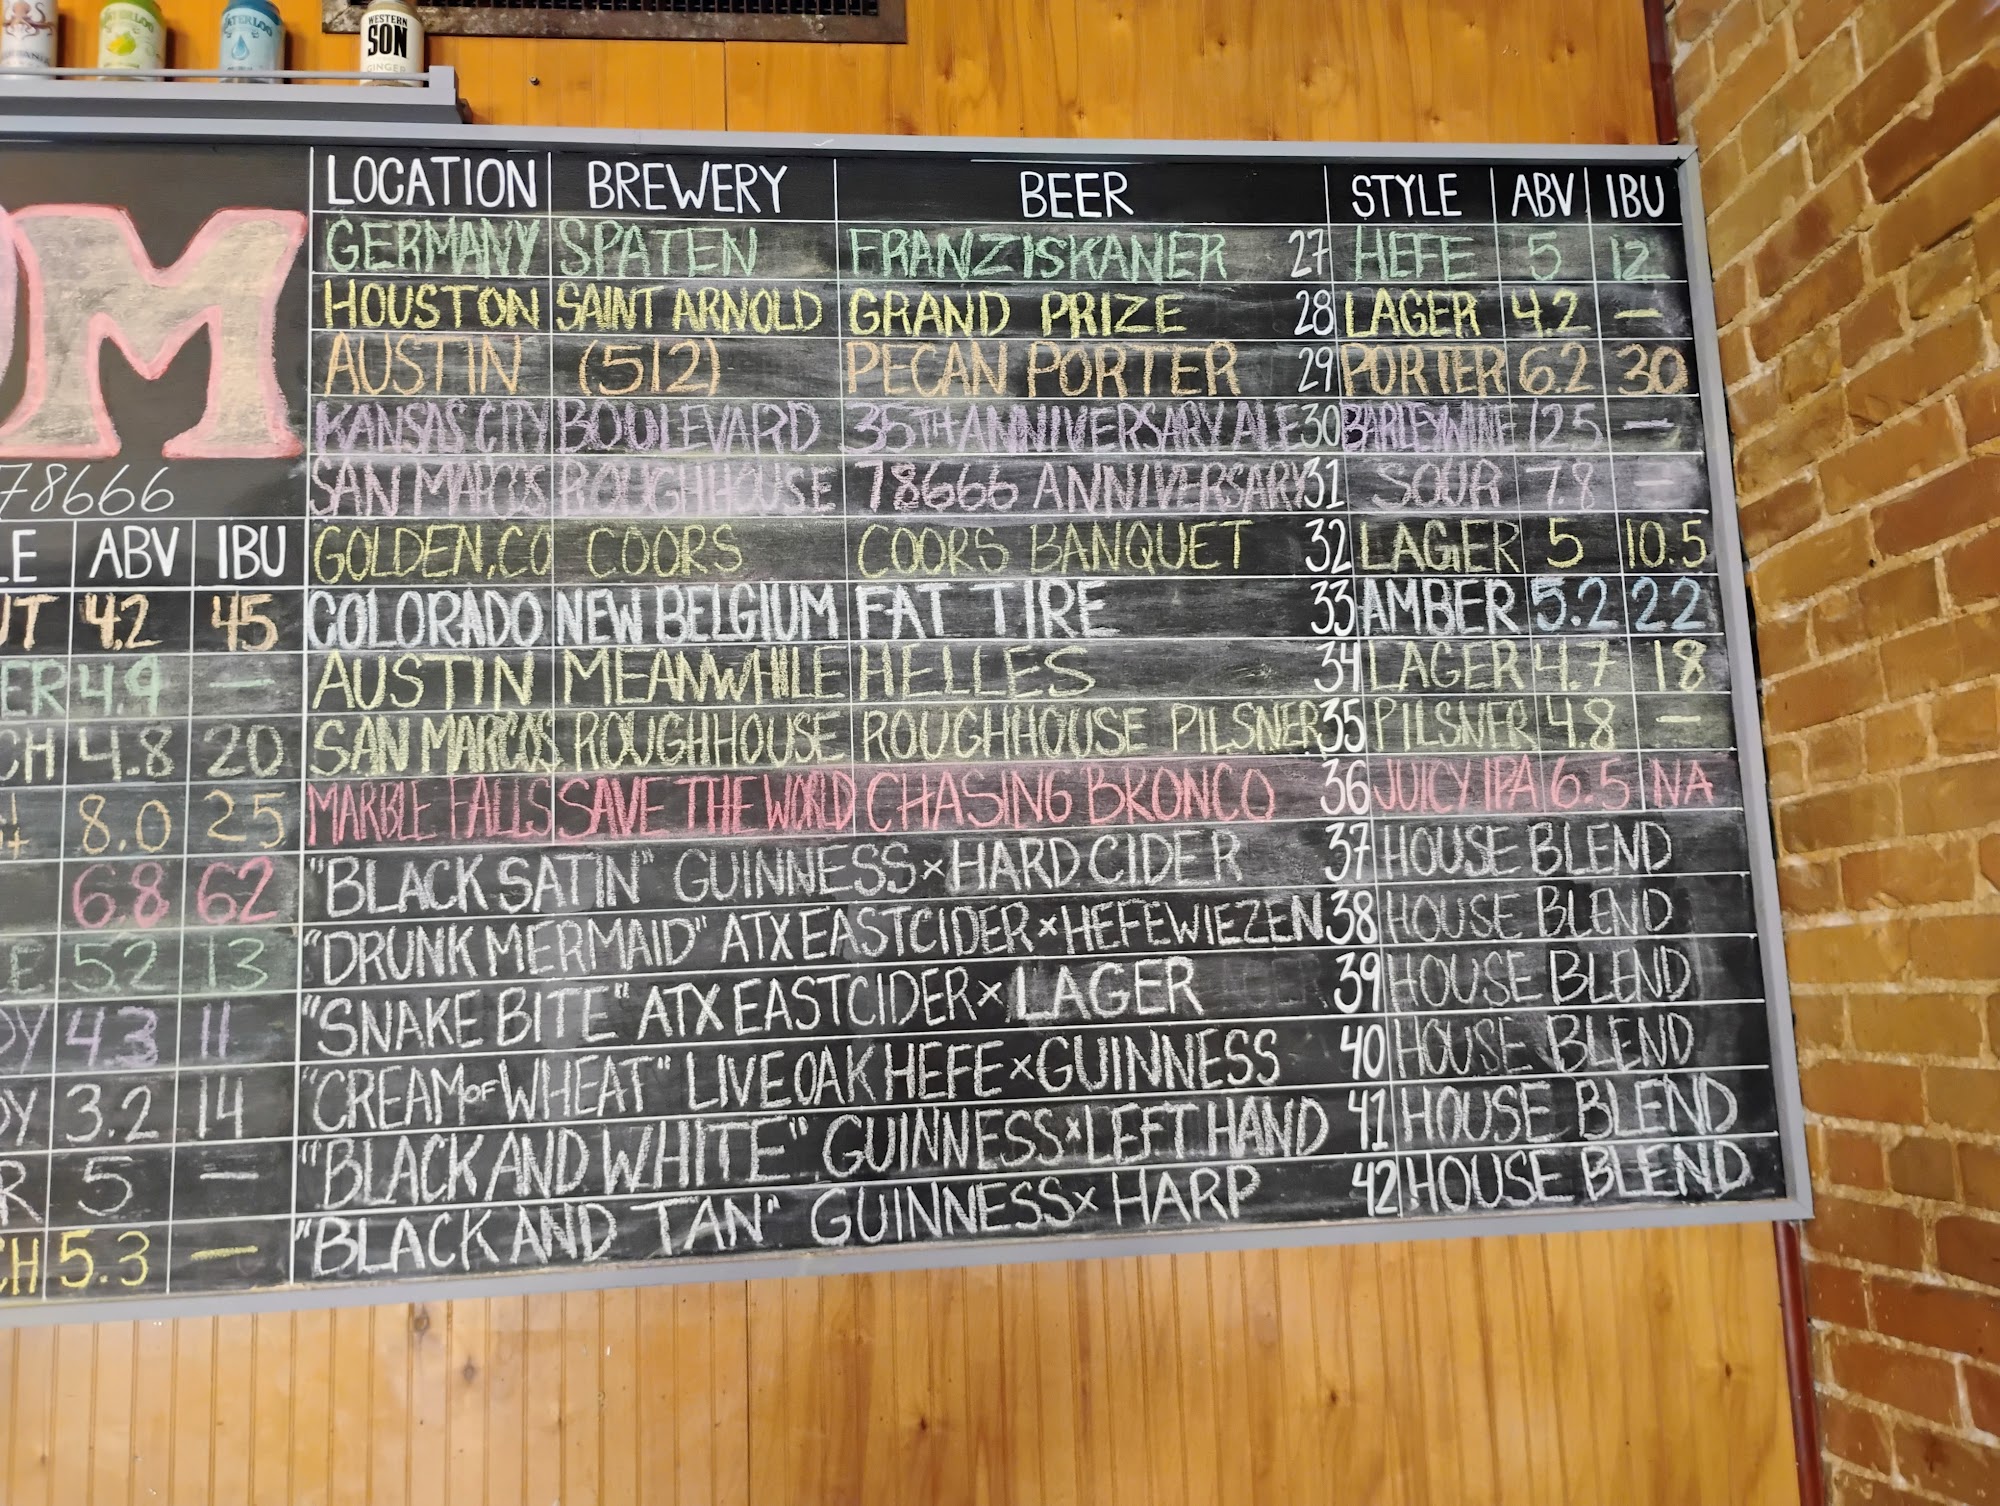 WATERLOO
WATERLOO
WESTERN
SON
GINGER
M
78666
LOCATION BREWERY BEER STYLE ABV IBU
GERMANY SPATEN FRANZISKANER 27 HEFE 5 12
HOUSTON SAINT ARNOLD GRAND PRIZE 28 LAGER 4.2 —
AUSTIN (512) PECAN PORTER 29 PORTER 6.2 30
KANSAS CITY BOULEVARD 35TH ANNIVERSARY ALE 30 BARLEYWINE 12.5 —
SAN MARCOS ROUGHHOUSE 78666 ANNIVERSARY 31 SOUR 7.8 —
GOLDEN, CO COORS COORS BANQUET 32 LAGER 5 10.5
COLORADO NEW BELGIUM FAT TIRE 33 AMBER 5.2 22
AUSTIN MEANWHILE HELLES 34 LAGER 4.7 18
SAN MARCOS ROUGHHOUSE ROUGHHOUSE PILSNER 35 PILSNER 4.8 —
MARBLE FALLS SAVE THE WORLD CHASING BRONCO 36 JUICY IPA 6.5 NA
"BLACK SATIN" GUINNESS × HARD CIDER 37 HOUSE BLEND
"DRUNK MERMAID" ATX EASTCIDER × HEFEWIEZEN 38 HOUSE BLEND
"SNAKE BITE" ATX EASTCIDER × LAGER 39 HOUSE BLEND
"CREAM OF WHEAT" LIVE OAK HEFE × GUINNESS 40 HOUSE BLEND
"BLACK AND WHITE" GUINNESS × LEFT HAND 41 HOUSE BLEND
"BLACK AND TAN" GUINNESS × HARP 42 HOUSE BLEND
LE ABV IBU
UT 4.2 45
ER 4.9 —
CH 4.8 20
8.0 25
6.8 62
E 5.2 13
DY 4.3 11
DY 3.2 14
R 5 —
CH 5.3 —